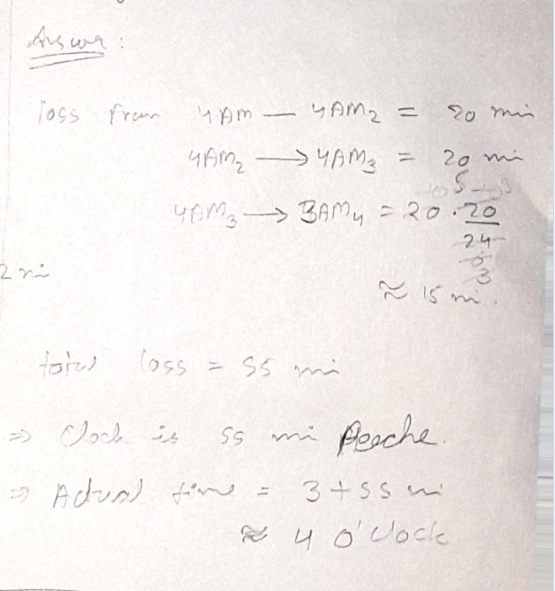 Answer :
loss from 4AM — 4AM₂ = 20 min
4AM₂ → 4AM₃ = 20 min
4AM₃ → 3AM₄ = 20 · 20
24
≈ 15 mi.
2 mi
total loss = 55 mi
⇒ Clock is 55 mi Peeche.
⇒ Actual time = 3 + 55 mi
≈ 4 O'Clock